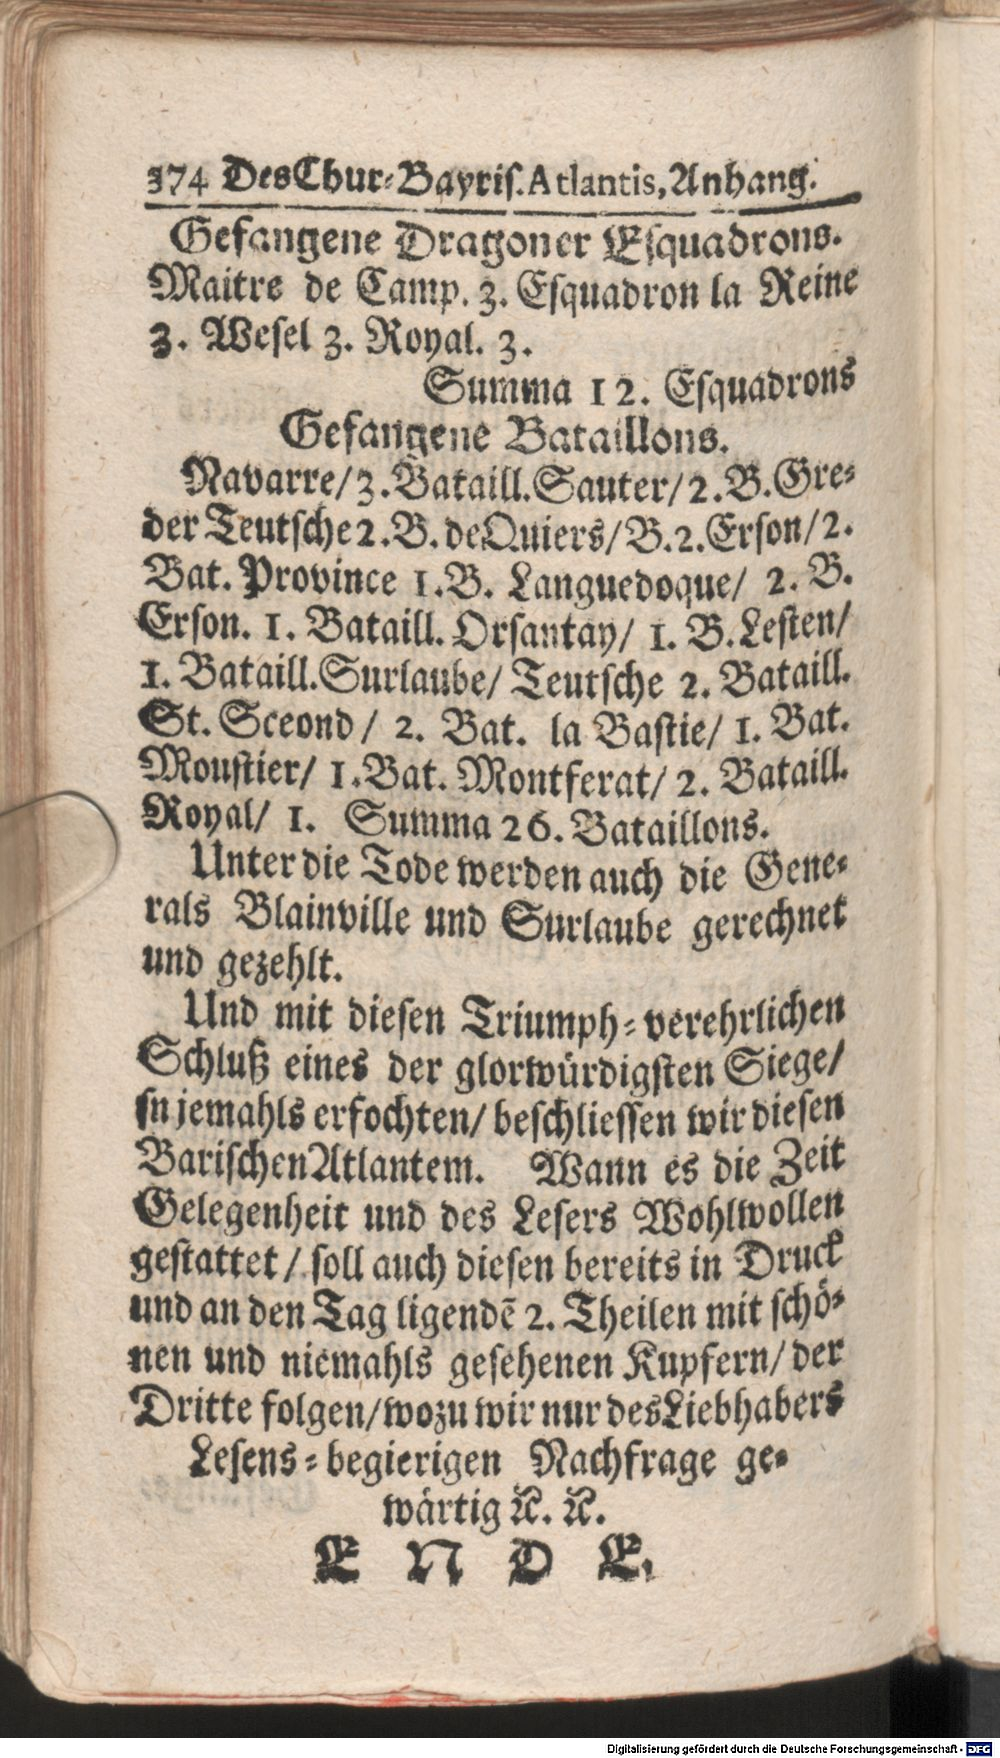 374 Des Chur-Bayris. Atlantis, Anhang.
Gefangene Dragoner Esquadrons.
Maitre de Camp. 3. Esquadron la Reine
3. Wesel 3. Royal. 3.
Summa 12. Esquadrons
Gefangene Bataillons.
Navarre/ 3. Bataill. Sauter/ 2. B. Gre-
der Teutsche 2. B. de Quiers/ B. 2. Erson/ 2.
Bat. Province 1. B. Languedoque/ 2. B.
Erson. 1. Bataill. Orsantay/ 1. B. Lesten/
1. Bataill. Surlaube/ Teutsche 2. Bataill.
St. Sceond/ 2. Bat. la Bastie/ 1. Bat.
Moustier/ 1. Bat. Montferat/ 2. Bataill.
Royal/ 1. Summa 26. Bataillons.
Unter die Tode werden auch die Gene-
rals Blainville und Surlaube gerechnet
und gezehlt.
Und mit diesen Triumph-verehrlichen
Schluß eines der glorwürdigsten Siege/
sn jemahls erfochten/ beschliessen wir diesen
Barischen Atlantem. Wann es die Zeit
Gelegenheit und des Lesers Wohlwollen
gestattet/ soll auch diesen bereits in Druck
und an den Tag ligendē 2. Theilen mit schö-
nen und niemahls gesehenen Kupfern/ der
Dritte folgen/ wozu wir nur des Liebhabers
Lesens-begierigen Nachfrage ge-
wärtig ꝛc. ꝛc.
E N D E.
Digitalisierung gefördert durch die Deutsche Forschungsgemeinschaft - DFG